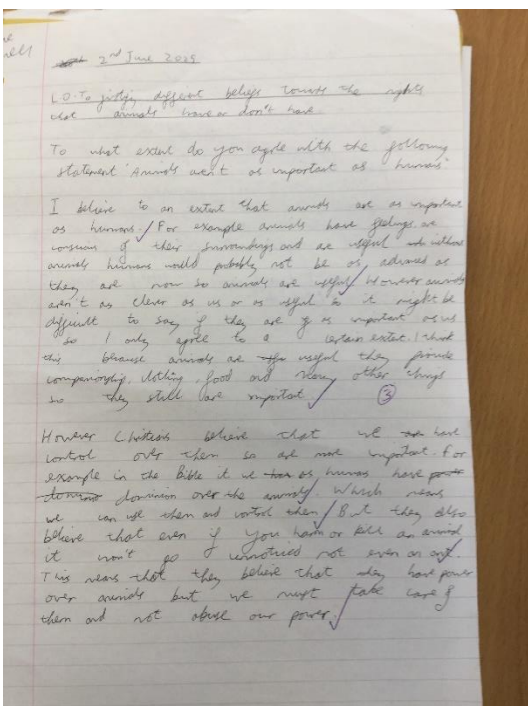 2nd June 2025
L.O - To justify different beliefs towards the rights
that animals have or don't have.
To what extent do you agree with the following
statement 'Animals aren't as important as humans'
I believe to an extent that animals are as important
as humans. For example animals have feelings, are
conscious of their surroundings and are useful without
animals humans would probably not be as advanced as
they are now so animals are useful. However animals
aren't as clever as us or as useful so it might be
difficult to say if they are as important as us
so I only agree to a certain extent. I think
this because animals are useful they provide
companionship, clothing, food and many other things
so they still are important.
3
However Christians believe that we have
control over them so are more important. For
example in the Bible it we as humans have
dominion over the animals. Which means
we can use them and control them. But they also
believe that even if you harm or kill an animal
it won't go unnoticed not even an ant.
This means that they believe that they have power
over animals but we must take care of
them and not abuse our power.